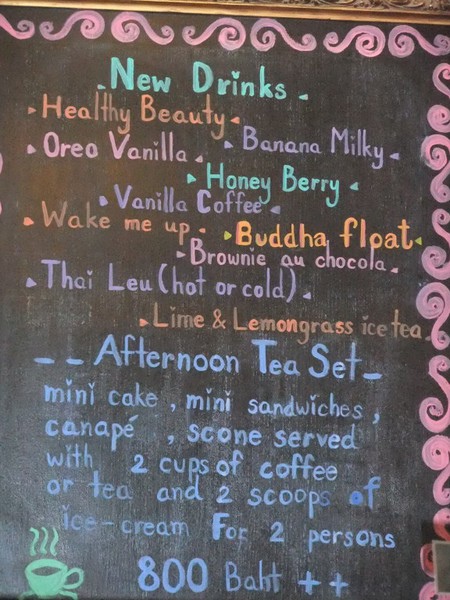 New Drinks
Healthy Beauty
Banana Milky
Oreo Vanilla
Honey Berry
Vanilla Coffee
Wake me up
Buddha float
Brownie au chocola
Thai Leu (hot or cold)
Lime & Lemongrass ice tea
Afternoon Tea Set
mini cake, mini sandwiches,
canapé, scone served
with 2 cups of coffee
or tea and 2 scoops of
ice-cream For 2 persons
800 Baht ++